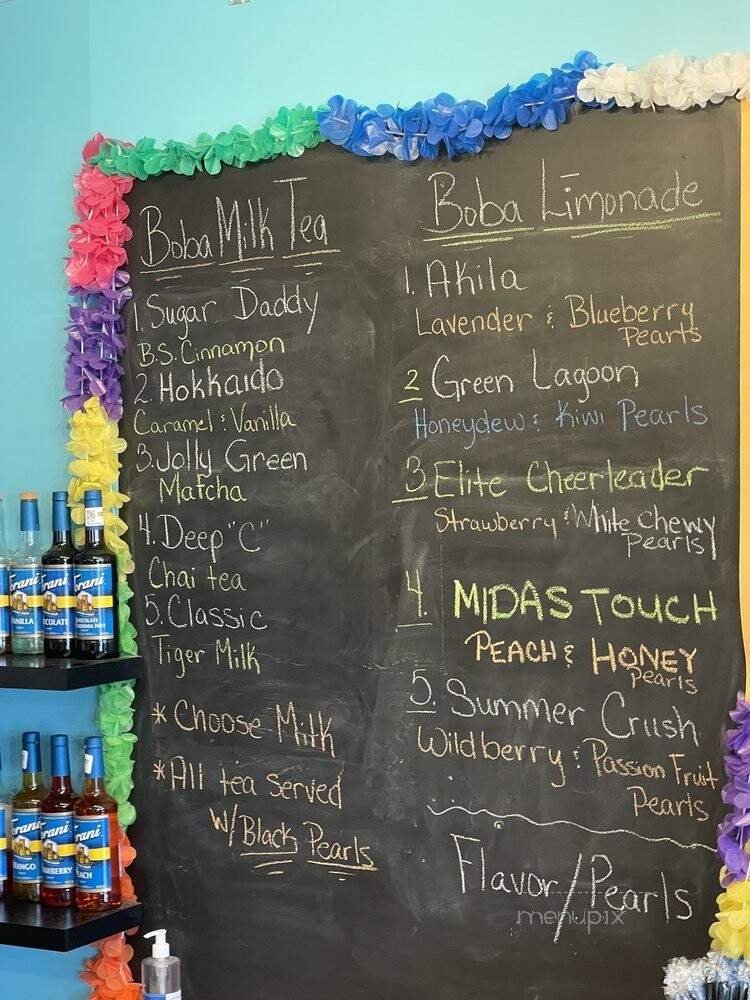 Boba Milk Tea
1. Sugar Daddy
B.S. Cinnamon
2. Hokkaido
Caramel & Vanilla
3. Jolly Green
Matcha
4. Deep "C"
Chai tea
5. Classic
Tiger Milk
* Choose Milk
* All tea served
w/ Black Pearls
Boba Limonade
1. Akila
Lavender & Blueberry
Pearls
2 Green Lagoon
Honeydew & Kiwi Pearls
3 Elite Cheerleader
Strawberry & White Chewy
Pearls
4. MIDAS TOUCH
PEACH & HONEY
Pearls
5. Summer Crush
Wildberry & Passion Fruit
Pearls
Flavor/Pearls
menupix
Torani
VANILLA
Torani
Torani
CHOCOLATE
Torani
MANGO
Torani
Torani
PEACH